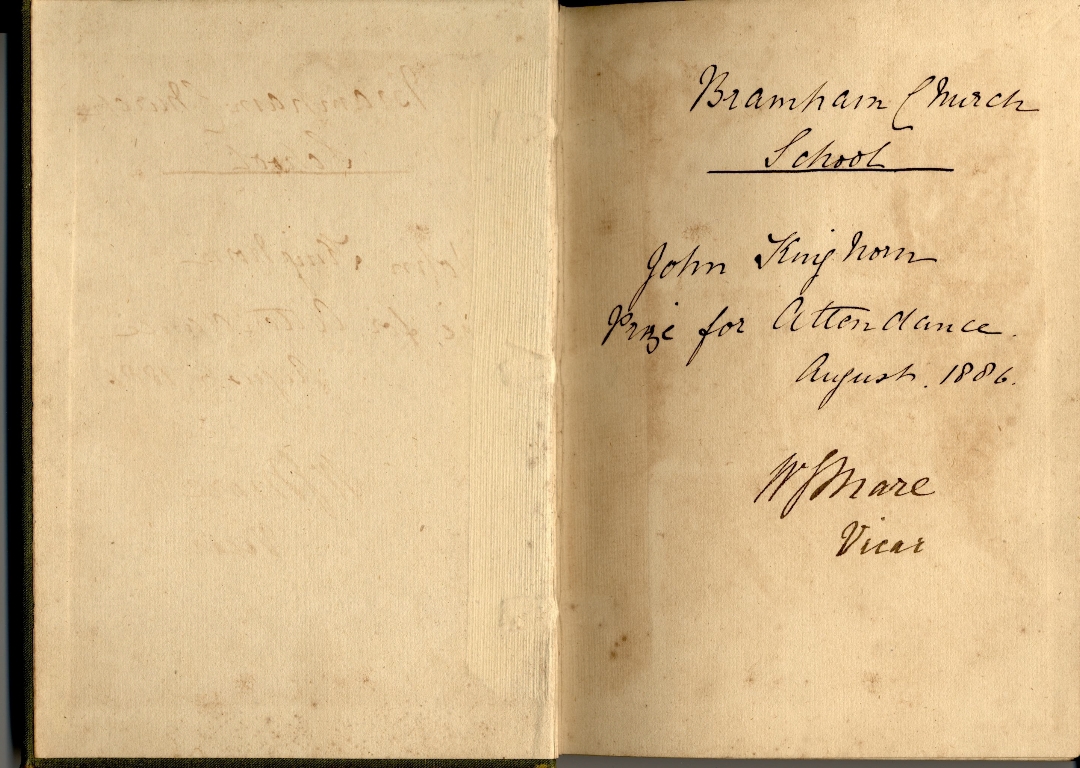 Bramham Church
School
John Kinghorn
Prize for Attendance.
August. 1886.
W J Mare
Vicar